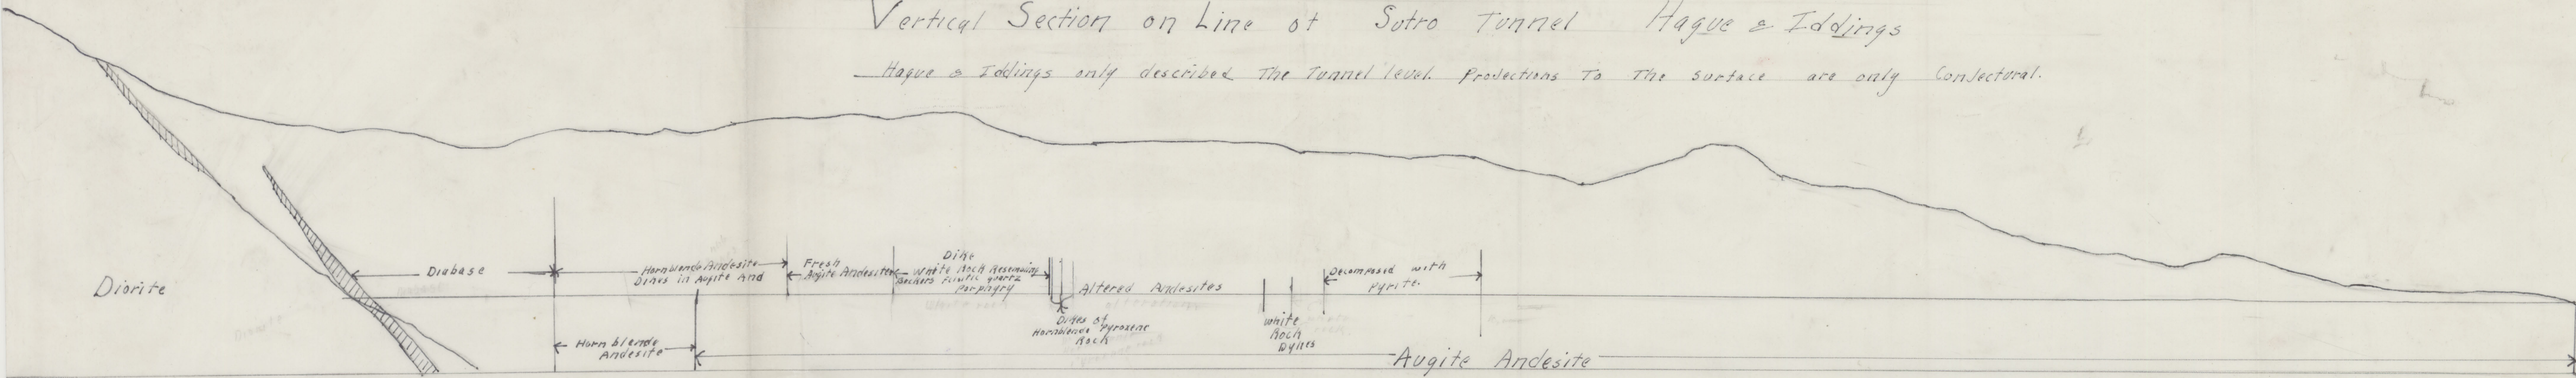 Vertical Section on Line of Sutro Tunnel Hague & Iddings
Hague & Iddings only described The Tunnel level. Projections To The surface are only Conjectural.
Diorite
Diabase
Hornblende Andesite
Dikes in Augite And
Fresh
Augite Andesite
Dike
White Rock Resembling
Beckers Felsitic quartz
Porphyry
Altered Andesites
Dikes of
Hornblende Pyroxene
Rock
White
Rock
Dykes
Decomposed with
Pyrite.
Hornblende
Andesite
Augite Andesite